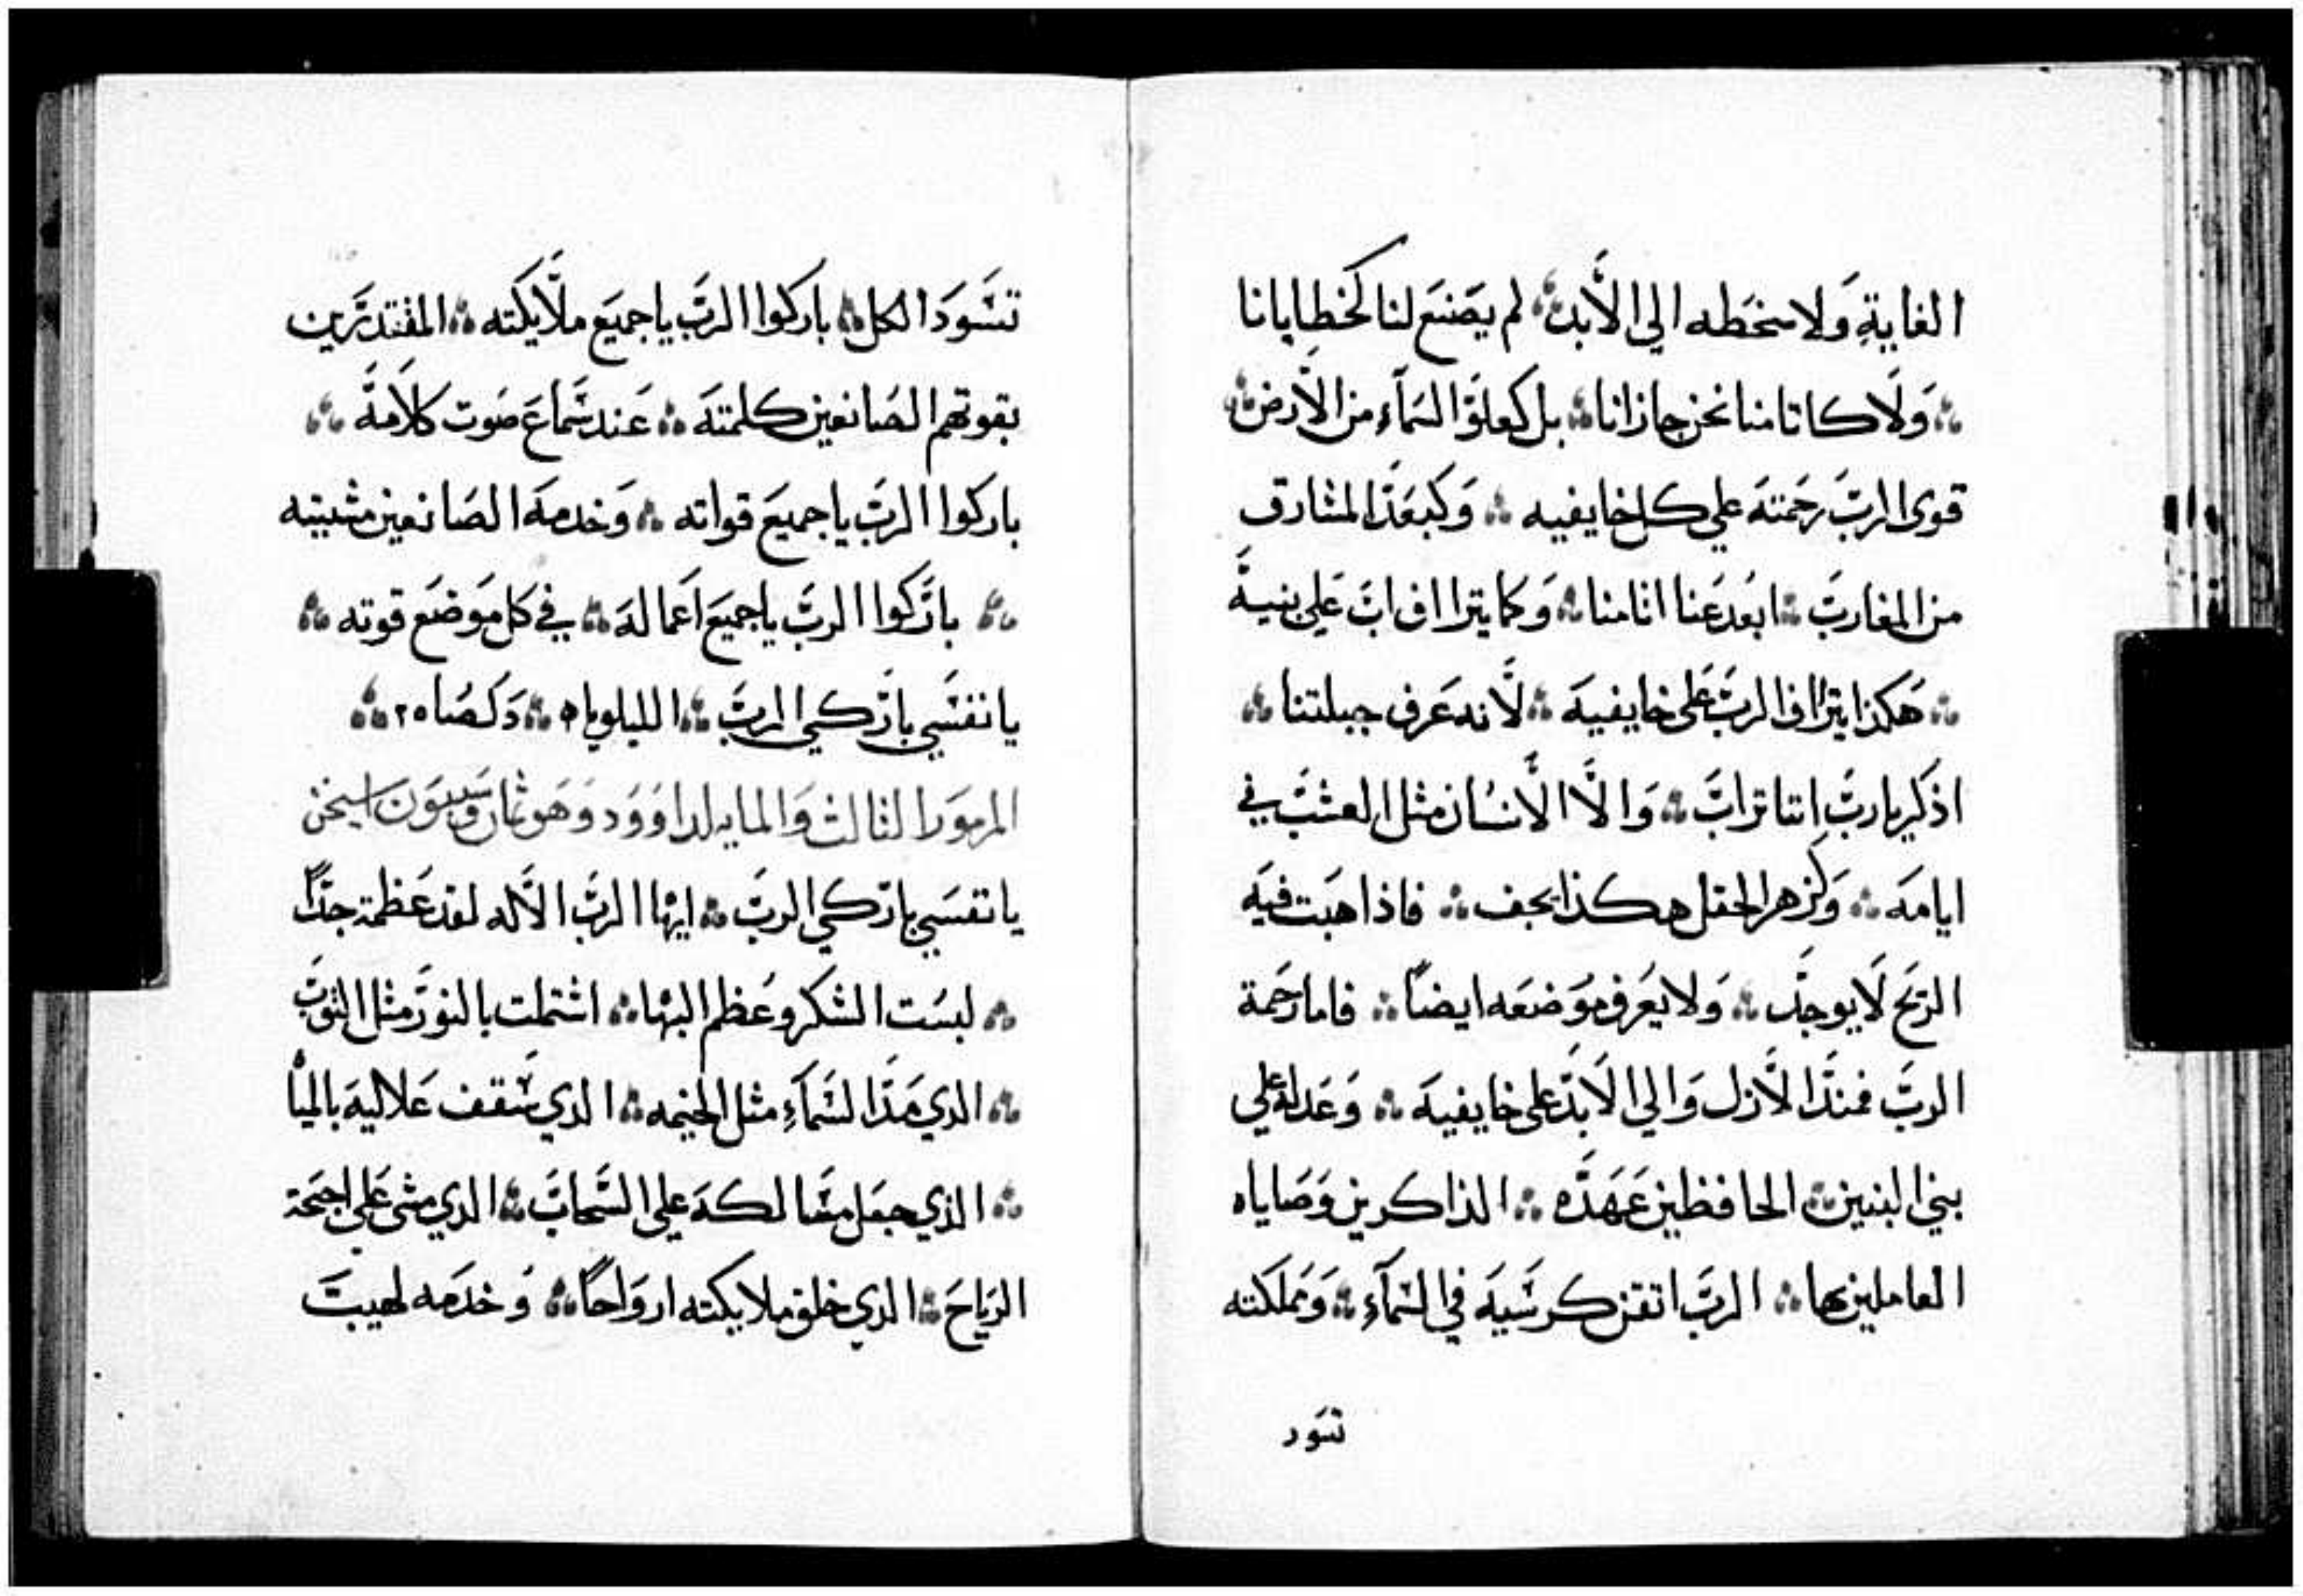 الغاية وَلا سخَطه الي الأبد ۞ لم يصَنع لنا كخطايانا
۞ وَلَا كاثامنا نحن جازانا ۞ بل كعلوّ السَمآء من الأرض ۞
قوي الربّ رحَمتهَ علي كل خايفيه ۞ وَكبعَد المشارق
من المغاربَ ۞ ابعُد عَنا اثامنا ۞ وَكما يتراافَ ابَ عَلي بنيهَ
۞ هَكذا يتراافَ الربَّ عَلى خايفيهَ ۞ لأنه عَرف جبلتنا ۞
اذكر يا ربّ اننا ترابَ ۞ وَالَا الأنسُان مثل العشبَ في
ايامهَ ۞ وَكزهر الحقل هكذا يجف ۞ فاذا هبَت فيهَ
الريَح لَا يوجدَ ۞ وَلا يعَرف موَضعَه ايضاً ۞ فاما رحَمة
الربَّ فمنذَ الأزل وَالي الأبدَ على خايفيهَ ۞ وَعَدله علي
بني البنين ۞ الحافظين عَهَدَه ۞ الذاكرين وَصَاياه
العاملين بها ۞ الربَّ اتقن كرسَيهَ في السَمآء ۞ وَمملكته
تسَود
تسَوَد الكل ۞ باركوا الربَّ يا جميَع ملأيكته ۞ المقتدرَين
بقوتهم الصَانعين كلمتهَ ۞ عَند سَماعَ صَوت كلَامهَ ۞
باركوا الربَّ يا جميعَ قواته ۞ وَخدمهَ الصَانعين مشييته
۞ باركوا الربَّ يا جميَع اعَمالهَ ۞ في كل موَضعَ قوته ۞
يا نفسَي باركي الربَّ ۞ الليلويا ۞ دَكصَا ٢٥ ۞
المزمور الثالث وَالمايه لداوَود وَهَو ثمان وَسبعوَن استيخن
يا نفسَي باركي الربَّ ۞ ايها الربَّ الألَه لقد عَظمت جداً
۞ لبسَت الشكر وعُظم البهَا ۞ اشتملت بالنوَر مثل الثوبَ
۞ الدي مَدَ السَمآءِ مثل الخيمه ۞ الدي سَقف عَلاليهَ بالميَأ
۞ الذي جعَل مسَالكهَ علي السَحابَ ۞ الدي مشي عَلي اجنحَة
الريَاحَ ۞ الدي خلق ملايكته اروَاحاً ۞ وَخدَمه لهيبَ